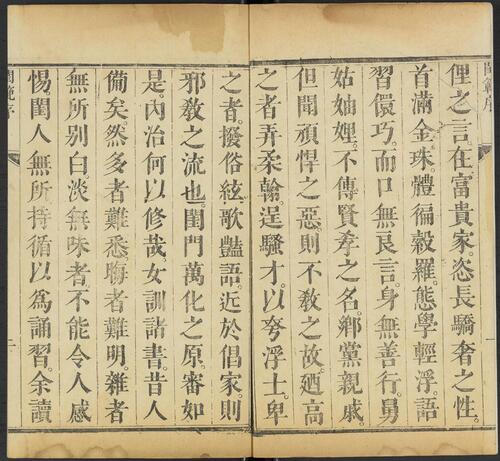 閨範序
俚之言在富貴家恣長驕奢之性。
首滿金珠。體徧縠羅。態學輕浮。語
習儇巧。而口無良言。身無善行。舅
姑妯娌。不傳賢孝之名。鄉黨親戚。
但聞頑悍之惡。則不敎之故。廼高
之者。弄柔翰。逞騷才。以夸浮士。卑
之者。撥俗絃。歌豔語。近於倡家。則
邪敎之流也。閨門萬化之原。審如
是。內治何以修哉。女訓諸書。昔人
備矣。然多者難悉。晦者難明。雜者
無所別白。淡無味者。不能令人感
惕。閨人無所持循以爲誦習。余讀
閨範序
二